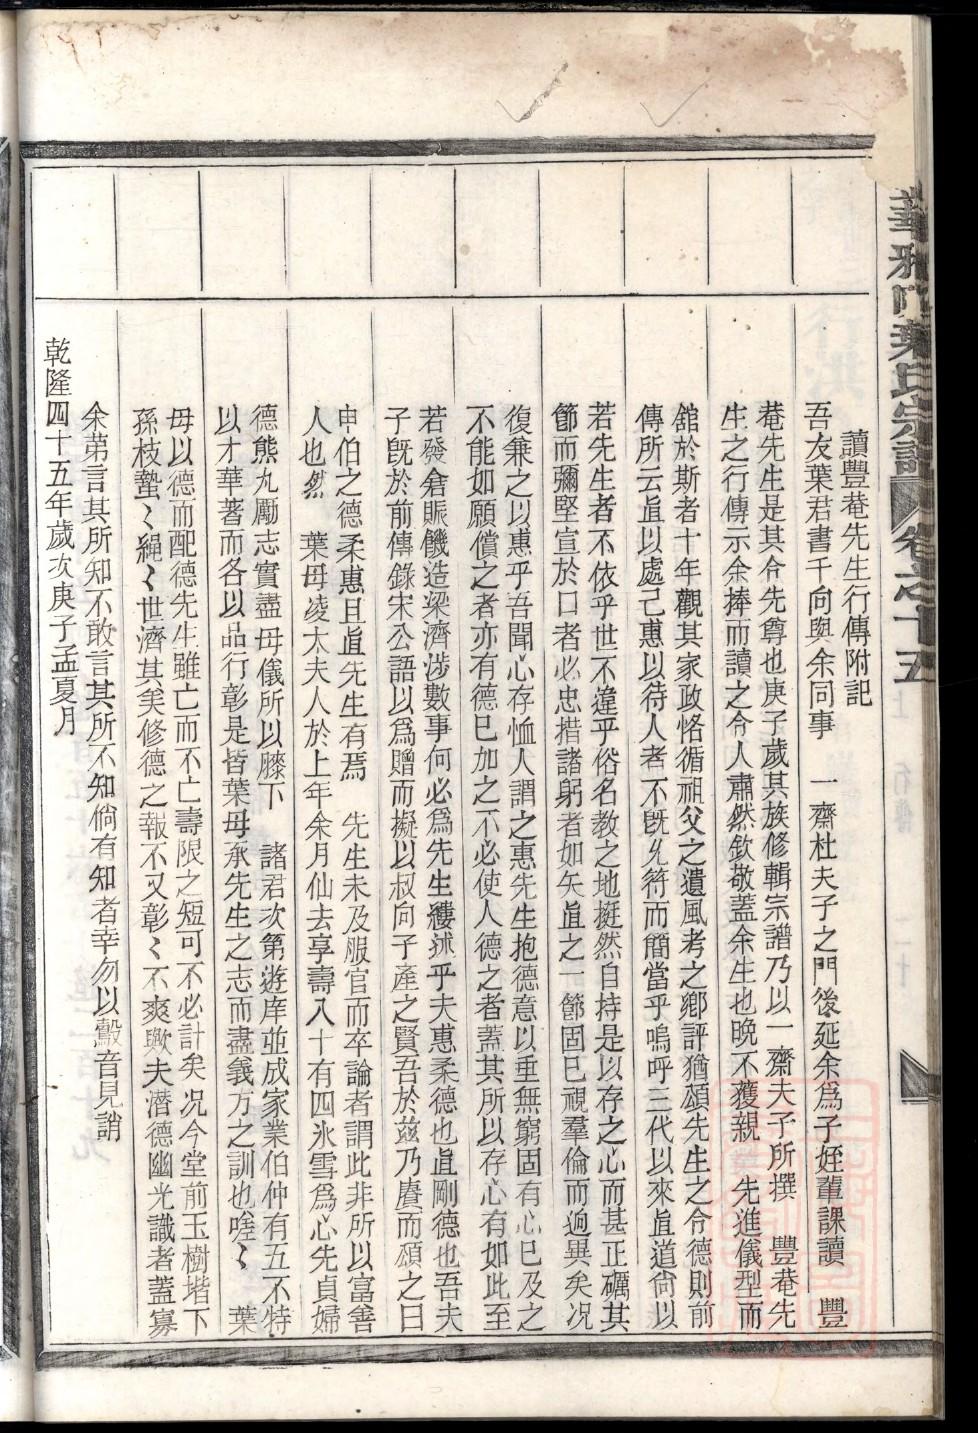 讀豐菴先生行傳附記
吾友葉君書千向與余同事　一齋杜夫子之門後延余爲子姪輩課讀　豐
菴先生是其令先尊也庚子歲其族修輯宗譜乃以一齋夫子所撰　豐菴先
生之行傳示余捧而讀之令人肅然欽敬蓋余生也晚不獲親　先進儀型而
舘於斯者十年觀其家政恪循祖父之遺風考之鄉評猶頌先生之令德則前
傳所云直以處己惠以待人者不旣允符而簡當乎嗚呼三代以來直道尙以
若先生者不依乎世不違乎俗名教之地挺然自持是以存之心而甚正礪其
節而彌堅宣於口者必忠措諸躬者如矢直之一節固已視羣倫而逈異矣况
復兼之以惠乎吾聞心存恤人謂之惠先生抱德意以垂無窮固有心已及之
不能如願償之者亦有德已加之不必使人德之者蓋其所以存心有如此至
若發倉賑饑造梁濟涉數事何必爲先生縷述乎夫惠柔德也直剛德也吾夫
子旣於前傳錄宋公語以爲贈而擬以叔向子產之賢吾於茲乃賡而頌之曰
申伯之德柔惠且直先生有焉　先生未及服官而卒論者謂此非所以富善
人也然　葉母凌太夫人於上年余月仙去享壽八十有四氷雪爲心先貞婦
德熊丸勵志實盡母儀所以縢下　諸君次第遊庠並成家業伯仲有五不特
以才華著而各以品行彰是皆葉母承先生之志而盡義方之訓也嗟〻　葉
母以德而配德先生雖亡而不亡壽限之短可不必計矣况今堂前玉樹堦下
孫枝蟄〻繩〻世濟其美修德之報不又彰〻不爽歟夫潛德幽光識者蓋寡
余苐言其所知不敢言其所不知倘有知者幸勿以鷇音見誚
乾隆四十五年歲次庚子孟夏月
葉氏宗譜
卷之十五